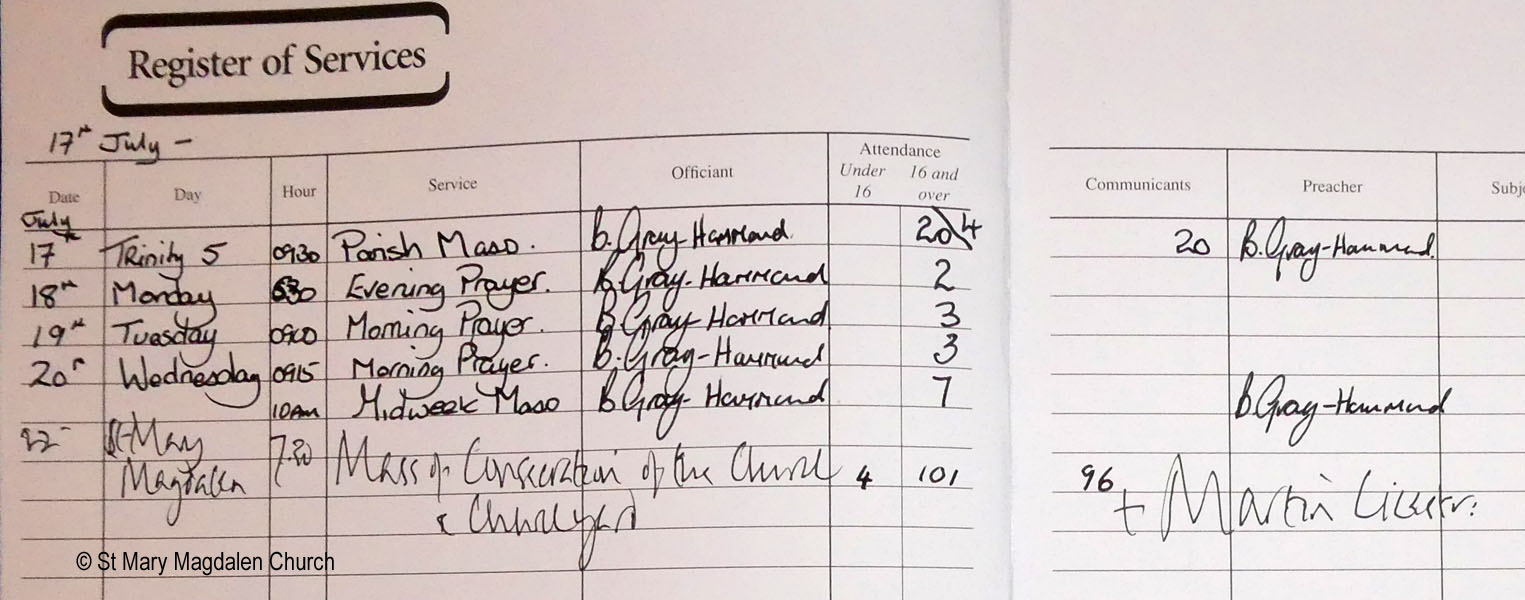 Register of Services
17th July –
Date Day Hour Service Officiant Attendance Under 16 16 and over Communicants Preacher
July
17th Trinity 5 0930 Parish Mass. B. Gray-Hammond 20 B. Gray-Hammond.
18th Monday 630 Evening Prayer. B. Gray-Hammond 2
19th Tuesday 0900 Morning Prayer. B. Gray-Hammond 3
20th Wednesday 0915 Morning Prayer. B. Gray-Hammond 3
10am Midweek Mass B Gray-Hammond 7 B Gray-Hammond
22 St Mary 7.30
Magdalen Mass of Consecration of the Church 4 101 96 + Martin Cicestr:
& Churchyard
© St Mary Magdalen Church